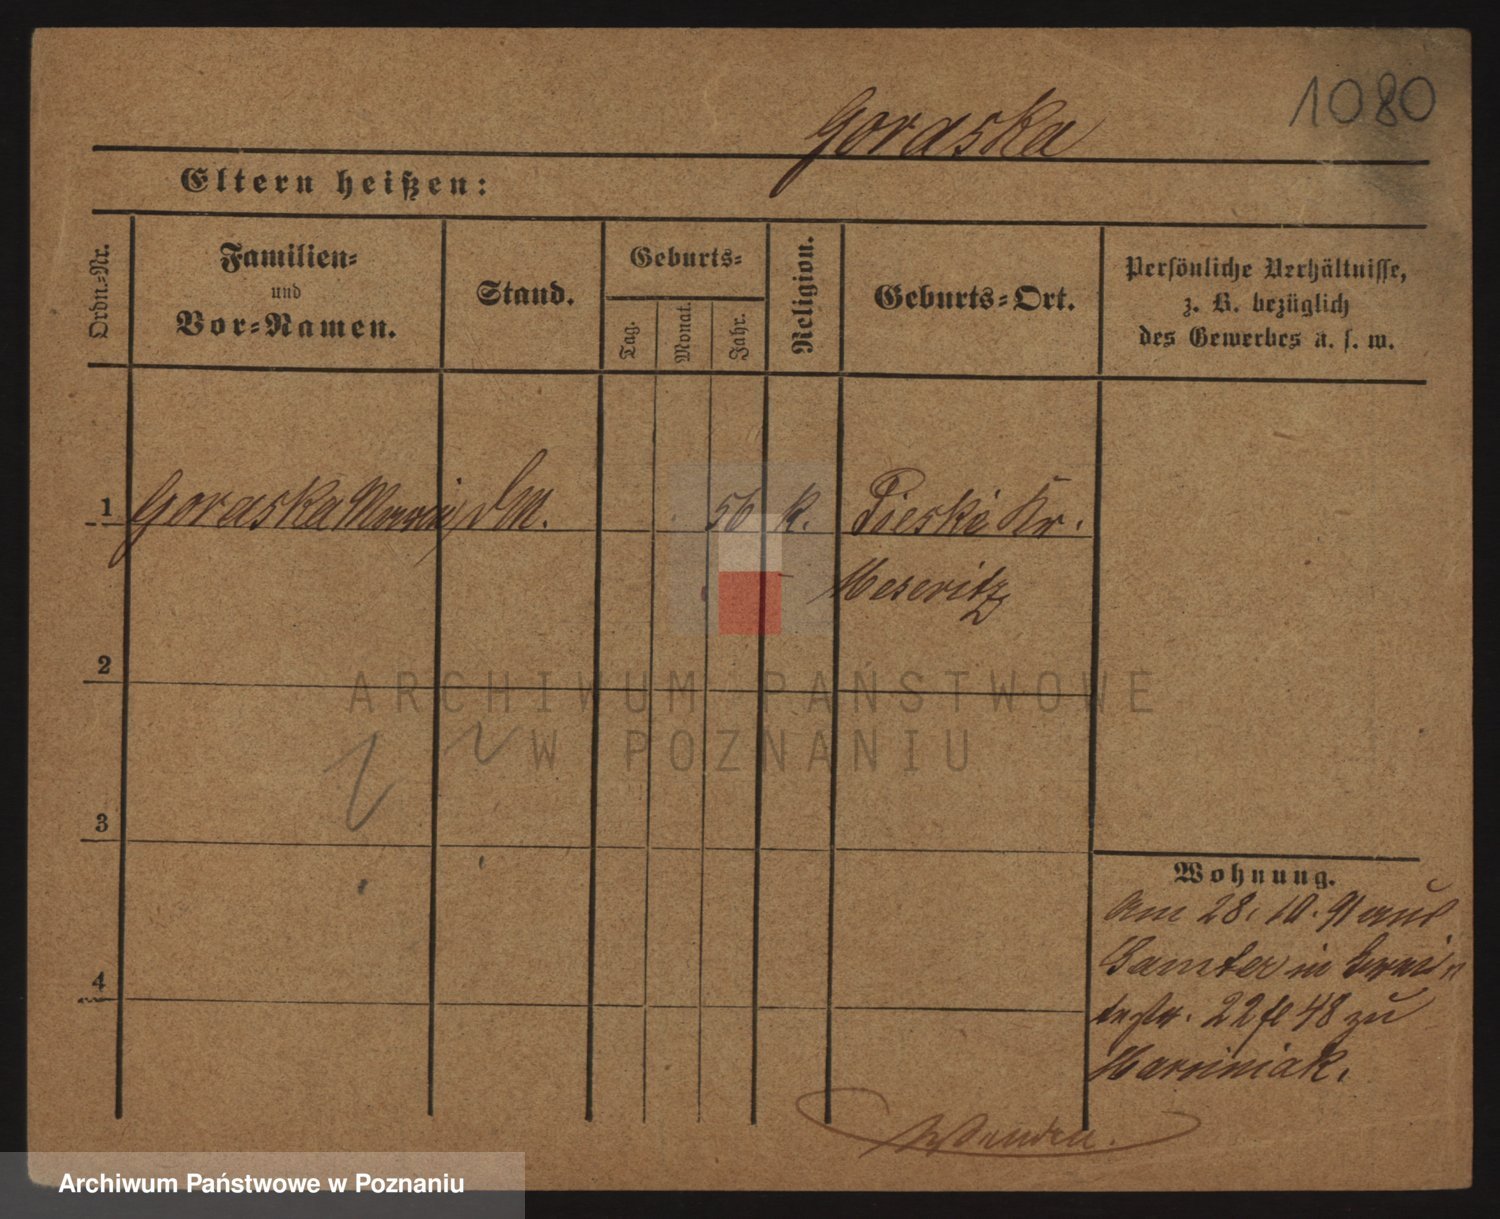 1080
Goraska
Eltern heißen:
Ordn.-Nr.
Familien-
und
Vor-Namen.
Stand.
Geburts-
Tag.
Monat.
Jahr.
Religion.
Geburts-Ort.
Persönliche Verhältnisse,
z. B. bezüglich
des Gewerbes u. s. w.
1 Goraska 56 k. Pieski Kr.
Meseritz
2
3
4
Wohnung.
Am 28. 10. 91 aus
Samter in
22 48 zu
Marciniak.
Wenden.
ARCHIWUM PAŃSTWOWE
W POZNANIU
Archiwum Państwowe w Poznaniu